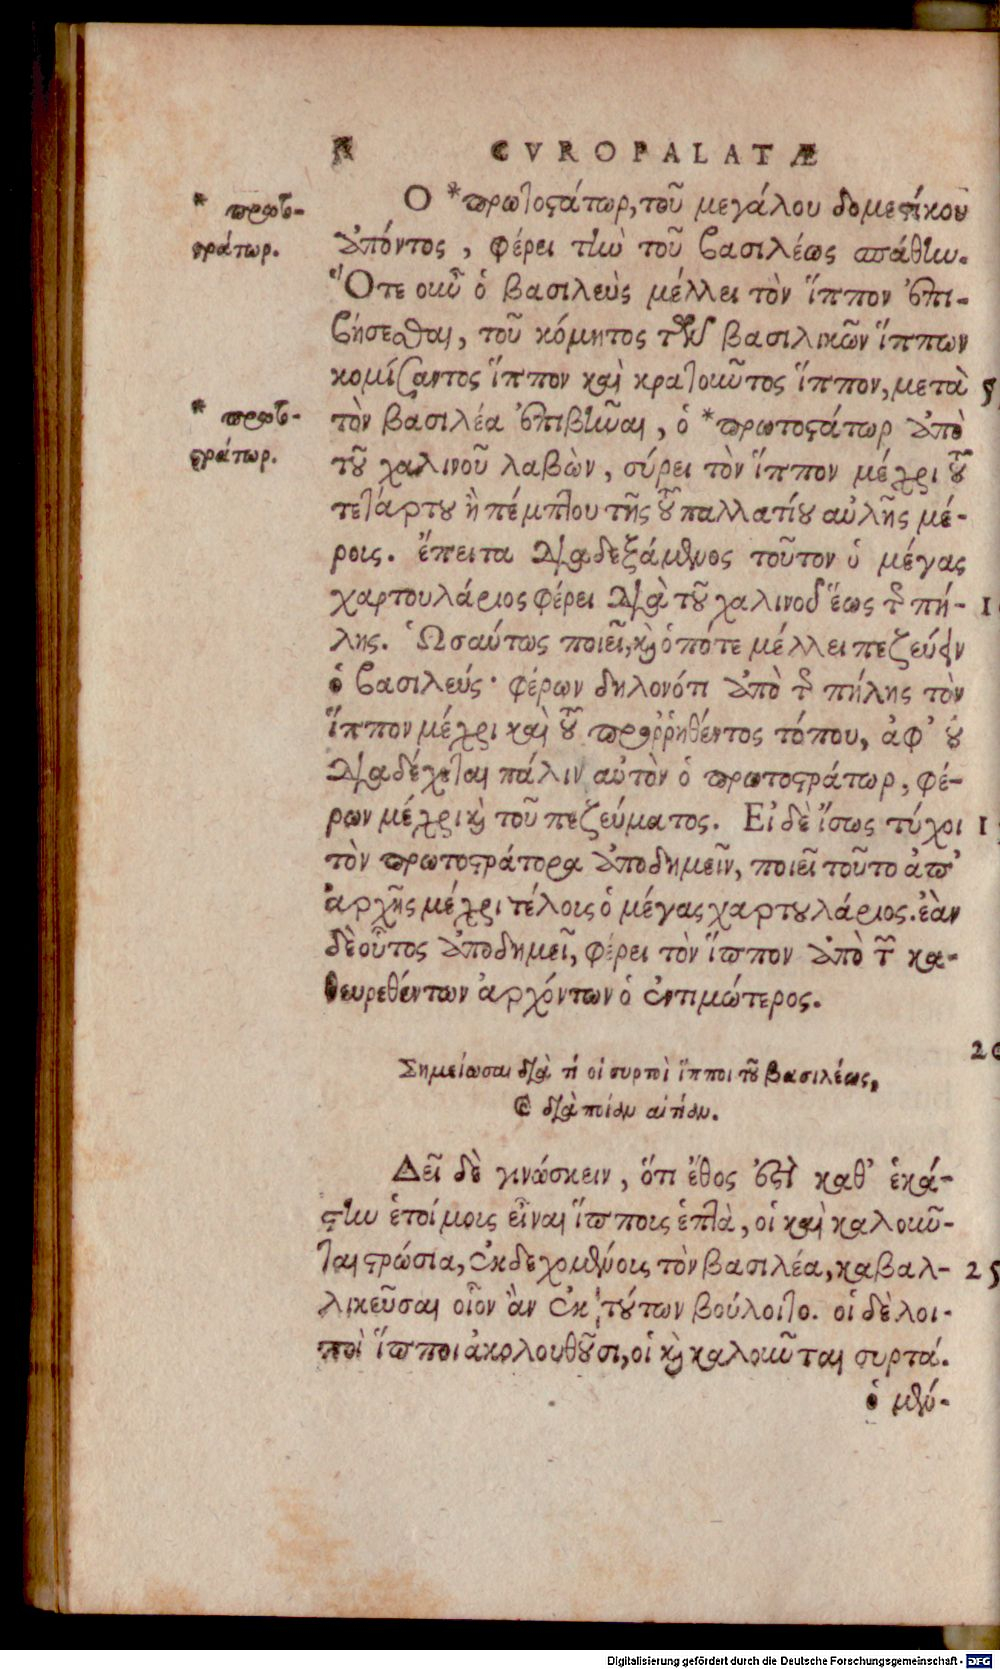 CVROPALATÆ
* πρωτο-
στράτωρ.
Ὁ *πρωτοστάτωρ, τοῦ μεγάλου δομεστίκου
ἀπόντος, φέρει τὴν τοῦ βασιλέως σπάθην.
Ὅτε οὖν ὁ βασιλεὺς μέλλει τὸν ἵππον ἐπι-
βήσεσθαι, τοῦ κόμητος τῶν βασιλικῶν ἵππων
κομίζαντος ἵππον καὶ κρατοῦντος ἵππον, μετὰ 5
* πρωτο-
στράτωρ.
τὸν βασιλέα ἐπιβῆναι, ὁ *πρωτοστάτωρ ἀπὸ
τοῦ χαλινοῦ λαβὼν, σύρει τὸν ἵππον μέχρι τοῦ
τετάρτου ἢ πέμπτου τῆς τοῦ παλλατίου αὐλῆς μέ-
ρους. ἔπειτα διαδεξάμενος τοῦτον ὁ μέγας
χαρτουλάριος φέρει διὰ τοῦ χαλινοῦ ἕως τῆς πή- 1
λης. Ὡσαύτως ποιεῖ, καὶ ὁπότε μέλλει πεζεύειν
ὁ βασιλεύς· φέρων δηλονότι ἀπὸ τῆς πήλης τὸν
ἵππον μέχρι καὶ τοῦ προῤῥηθέντος τόπου, ἀφ' οὗ
διαδέχεται πάλιν αὐτὸν ὁ πρωτοστράτωρ, φέ-
ρων μέχρι καὶ τοῦ πεζεύματος. Εἰ δὲ ἴσως τύχοι 1
τὸν πρωτοστράτορα ἀποδημεῖν, ποιεῖ τοῦτο ἀπ'
ἀρχῆς μέχρι τέλους ὁ μέγας χαρτουλάριος. ἐὰν
δὲ οὗτος ἀποδημεῖ, φέρει τὸν ἵππον ἀπὸ τῶν κα-
θευρεθέντων ἀρχόντων ὁ ἐντιμώτερος.
20
Σημείωσαι διὰ τί οἱ συρτοὶ ἵπποι τοῦ βασιλέως,
καὶ διὰ ποίαν αἰτίαν.
Δεῖ δὲ γινώσκειν, ὅτι ἔθος ἐστὶ καθ' ἑκά-
στην ἑτοίμους εἶναι ἵππους ἑπτὰ, οἱ καὶ καλοῦν-
ται στρώσια, ἐκδεχομένους τὸν βασιλέα, καβαλ- 25
λικεῦσαι οἷον ἂν ἐκ τούτων βούλοιτο. οἱ δὲ λοι-
ποὶ ἵπποι ἀκολουθοῦσι, οἱ καὶ καλοῦνται συρτά.
ὁ μέν-
Digitalisierung gefördert durch die Deutsche Forschungsgemeinschaft - DFG